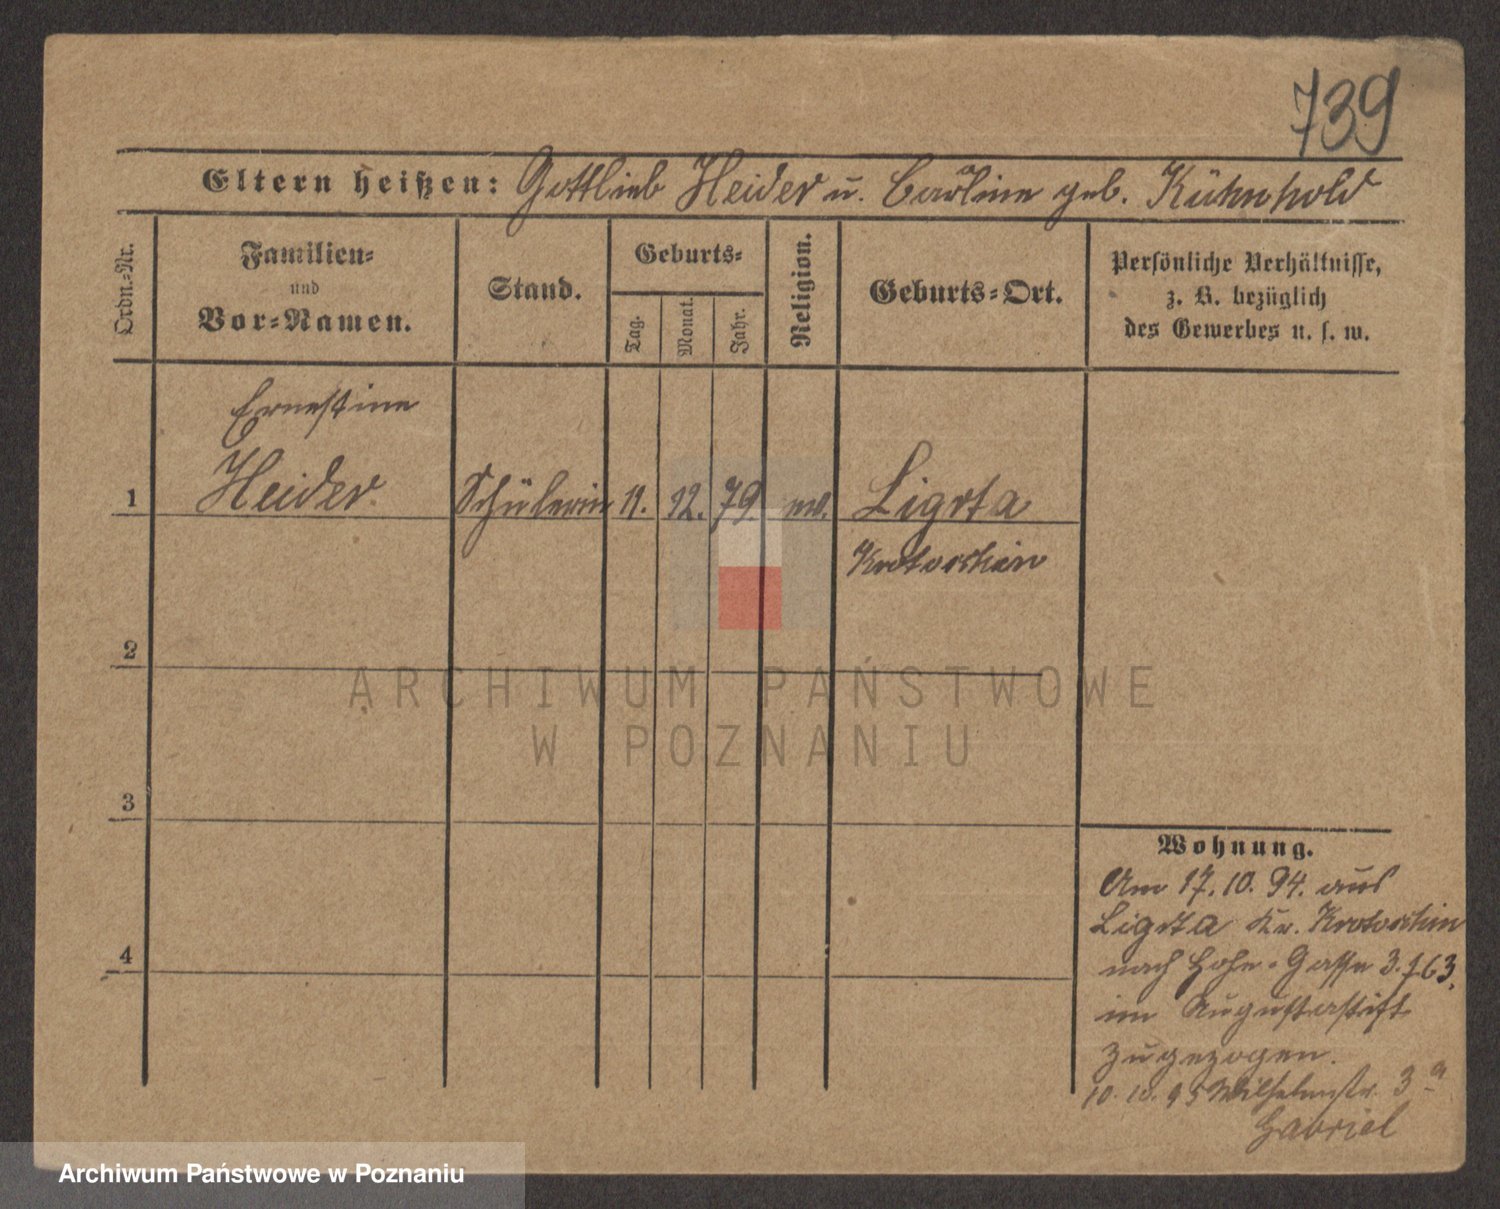 739
Eltern heißen: Gottlieb Heider u. Caroline geb. Kühnhold
Ordn.-Nr.
Familien-
und
Vor-Namen.
Stand.
Geburts-
Tag.
Monat.
Jahr.
Religion.
Geburts-Ort.
Persönliche Verhältnisse,
z. B. bezüglich
des Gewerbes u. s. w.
Ernestine
1 Heider Schülerin 11. 12. 79. ev. Ligota
Krotoschin
2
3
4
ARCHIWUM PAŃSTWOWE
W POZNANIU
Wohnung.
Am 17.10.94. aus
Ligota Kr. Krotoschin
nach Hohe-Gasse 3. 763.
im Augustastift
zugezogen.
10.10.95 Wilhelmstr. 3a
Gabriel
Archiwum Państwowe w Poznaniu